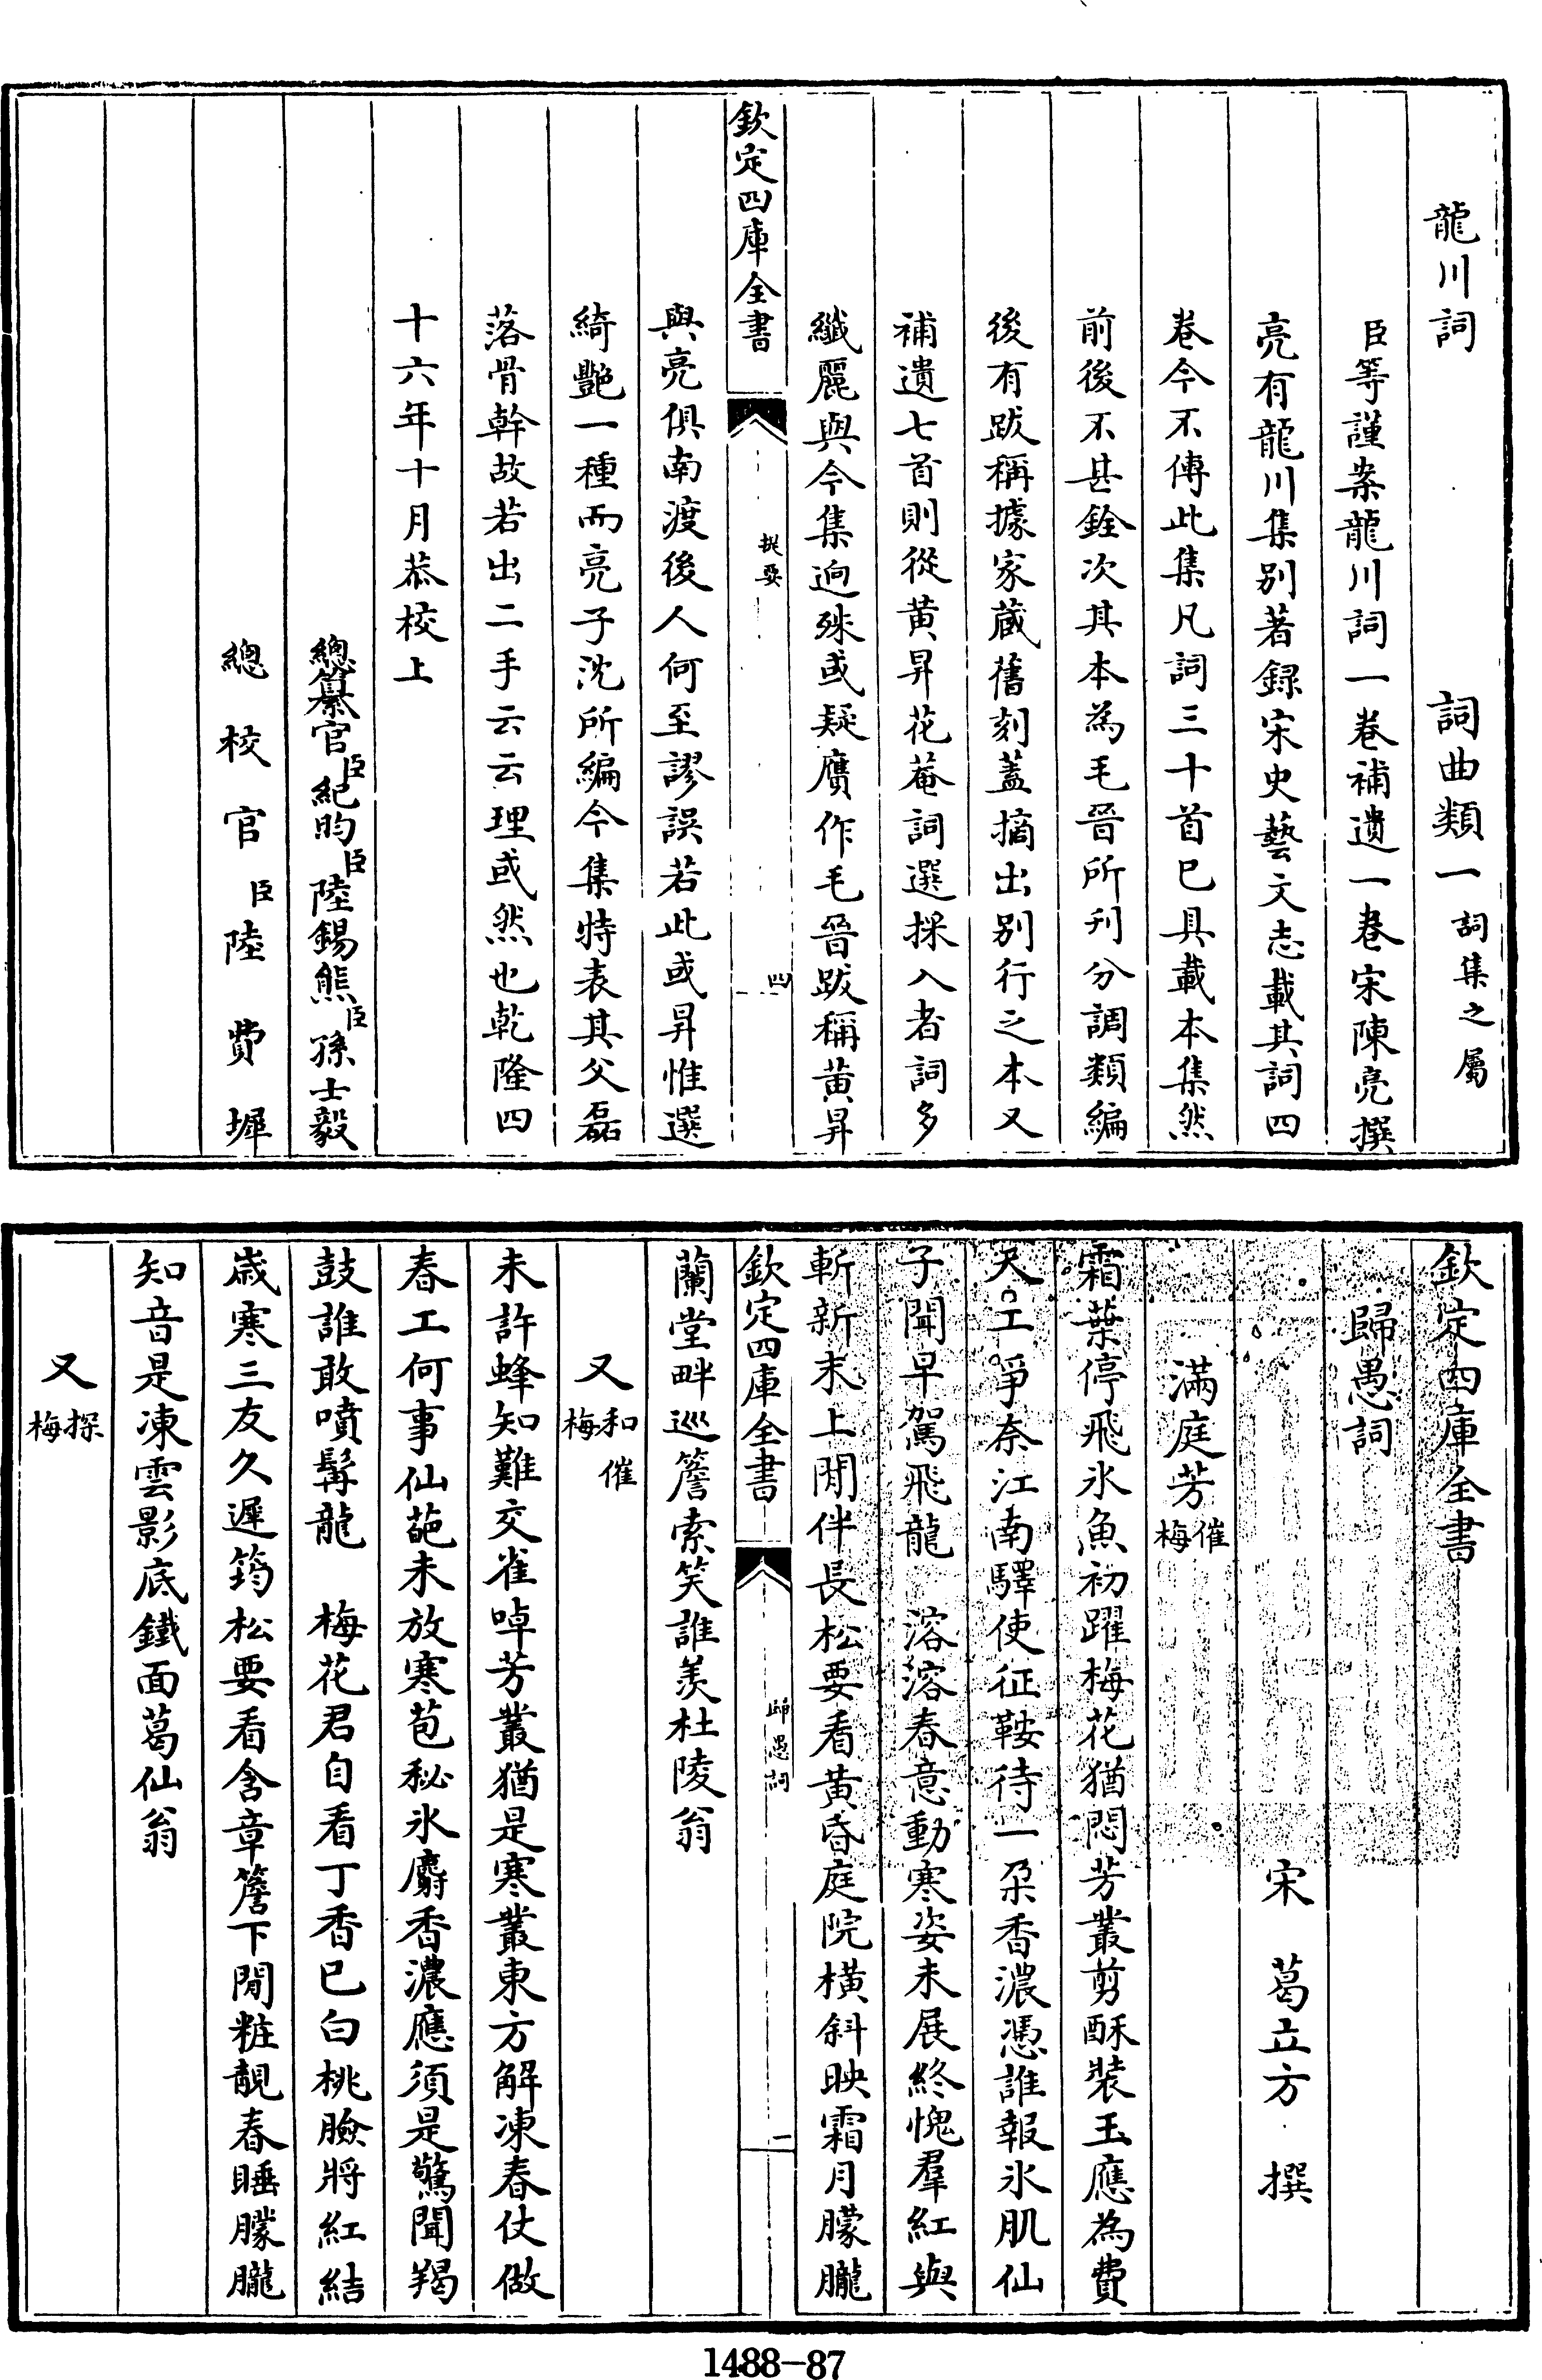 龍川詞　詞曲類一詞集之屬
臣等謹案龍川詞一卷補遺一卷宋陳亮撰
亮有龍川集别著録宋史藝文志載其詞四
卷今不傳此集凡詞三十首已具載本集然
前後不甚銓次其本為毛晉所刋分調類編
後有跋稱據家藏舊刻蓋摘出别行之本又
補遺七首則從黄昇花菴詞選採入者詞多
纎麗與今集逈殊或疑贗作毛晉跋稱黄昇
欽定四庫全書　提要　四
與亮俱南渡後人何至謬誤若此或昇惟選
綺艷一種而亮子沈所編今集特表其父磊
落骨幹故若出二手云云理或然也乾隆四
十六年十月恭校上
總纂官臣紀昀臣陸錫熊臣孫士毅
總校官臣陸費墀
欽定四庫全書
歸愚詞
宋　葛立方　撰
滿庭芳催梅
霜葉停飛氷魚初躍梅花猶悶芳叢剪酥裝玉應為費
天工爭奈江南驛使征鞍待一朶香濃憑誰報氷肌仙
子聞早駕飛龍　溶溶春意動寒姿未展終愧羣紅與
斬新末上閒伴長松要看黄昏庭院横斜映霜月朦朧
欽定四庫全書　歸愚詞　一
蘭堂畔巡簷索笑誰羡杜陵翁
又和催梅
未許蜂知難交雀啅芳叢猶是寒叢東方解凍春仗做
春工何事仙葩未放寒苞秘氷麝香濃應須是驚聞羯
鼓誰敢噴髯龍　梅花君自看丁香已白桃臉將紅結
歲寒三友久遲筠松要看含章簷下閒粧靚春睡朦朧
知音是凍雲影底鐵面葛仙翁
又探梅
1488-87